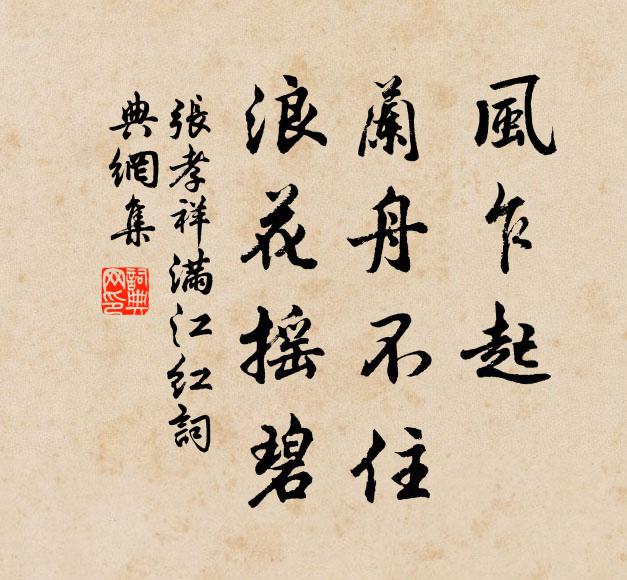 風乍起
蘭舟不住
浪花摇碧
張孝祥滿江紅詞
典網集
詞典
网印